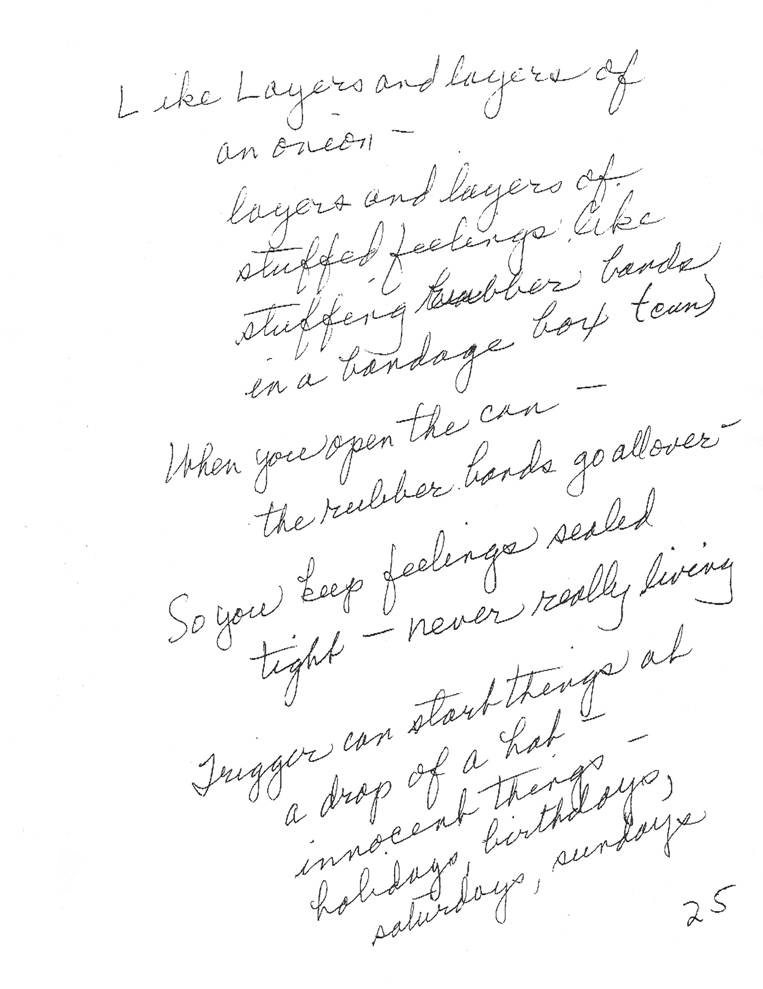 Like Layers and layers of
an onion -
layers and layers of
stuffed feelings like
stuffing rubber bands
in a bandage box (can)
When you open the can -
the rubber bands go all over -
So you keep feelings sealed
tight - never really living
Trigger can start things at
a drop of a hat -
innocent things -
holidays, birthdays,
saturdays, sundays
25